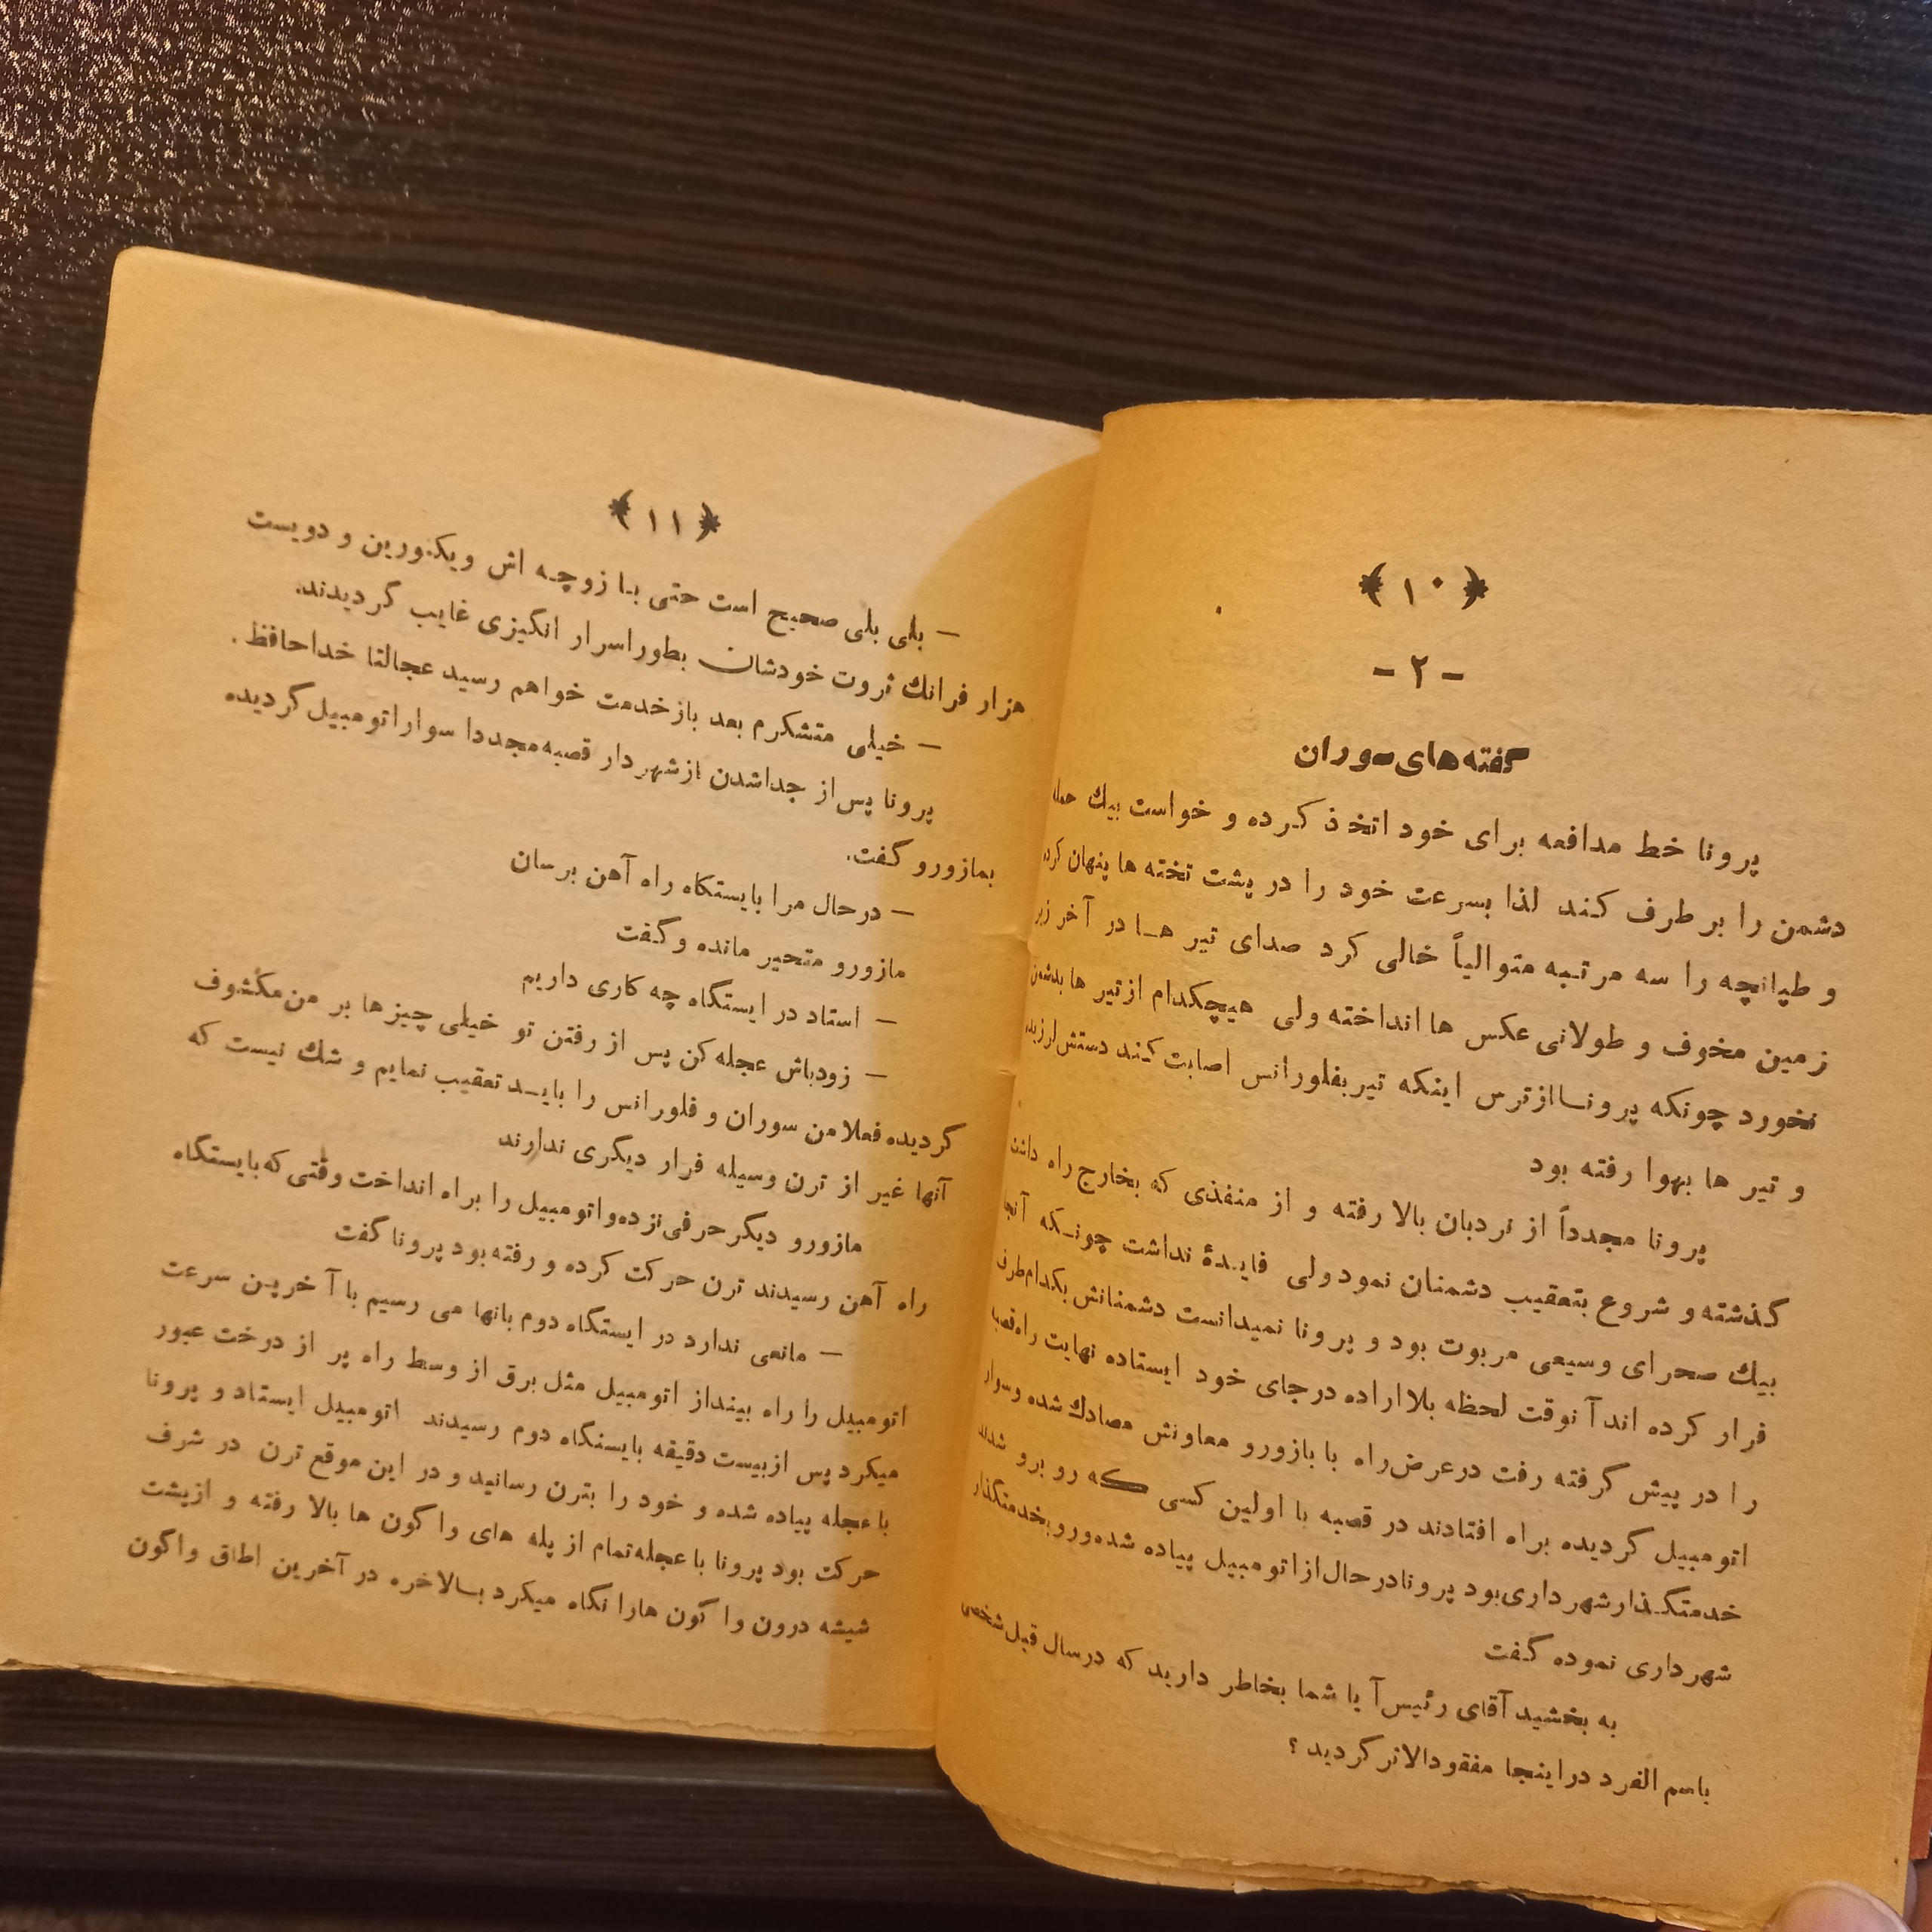 ﴿ ۱۰ ﴾
- ۲ -
گفته‌های سوران
پرونا خط مدافعه برای خود اتخذ کرده و خواست بیك حمله
دشمن را بر طرف کند لذا بسرعت خود را در پشت تخته ها پنهان کرده
و طپانچه را سه مرتبه متوالیاً خالی کرد صدای تیر ها در آخر زیر
زمین مخوف و طولانی عکس ها انداخته ولی هیچکدام از تیر ها بدشمن
نخورد چونکه پرونا از ترس اینکه تیر بفلورانس اصابت کند دستش لرزیده
و تیر ها بهوا رفته بود
پرونا مجدداً از نردبان بالا رفته و از منفذی که بخارج راه داشت
گذشته و شروع بتعقیب دشمنان نمود ولی فایدهٔ نداشت چونکه آنجا
بیك صحرای وسیعی مربوت بود و پرونا نمیدانست دشمنانش بکدام طرف
فرار کرده اند آنوقت لحظه بلا اراده در جای خود ایستاده نهایت راه قصبه
را در پیش گرفته رفت در عرض راه با بازورو معاونش مصادك شده وسوار
اتومبیل گردیده براه افتادند در قصبه با اولین کسی که رو برو شدند
خدمتگذار شهرداری بود پرونا درحال از اتومبیل پیاده شده ورو بخدمتگذار
شهرداری نموده گفت
به بخشید آقای رئیس آیا شما بخاطر دارید که در سال قبل شخصی
باسم الفرد در اینجا مفقودالاثر گردید ؟
﴿ ۱۱ ﴾
— بلی بلی صحیح است حتی با زوچه اش ویکتورین و دویست
هزار فرانك ثروت خودشان بطور اسرار انگیزی غایب گردیدند.
— خیلی متشکرم بعد باز خدمت خواهم رسید عجالتا خداحافظ .
پرونا پس از جداشدن از شهردار قصبه مجددا سوار اتومبیل گردیده
بمازورو گفت.
— درحال مرا بایستکاه راه آهن برسان
مازورو متحیر مانده و گفت
— استاد در ایستگاه چه کاری داریم
— زودباش عجله کن پس از رفتن تو خیلی چیزها بر من مکشوف
گردیده فعلا من سوران و فلورانس را باید تعقیب نمایم و شك نیست که
آنها غیر از ترن وسیله فرار دیگری ندارند
مازورو دیگر حرفی نزده واتومبیل را براه انداخت وقتی که بایستگاه
راه آهن رسیدند ترن حرکت کرده و رفته بود پرونا گفت
— مانعی ندارد در ایستگاه دوم بانها می رسیم با آخرین سرعت
اتومبیل را راه بینداز اتومبیل مثل برق از وسط راه پر از درخت عبور
میکرد پس از بیست دقیقه بایستگاه دوم رسیدند اتومبیل ایستاد و پرونا
با عجله پیاده شده و خود را بترن رسانید و در این موقع ترن در شرف
حرکت بود پرونا با عجله تمام از پله های واگون ها بالا رفته و از پشت
شیشه درون واگون هارا نگاه میکرد بسالاخره در آخرین اطاق واگون